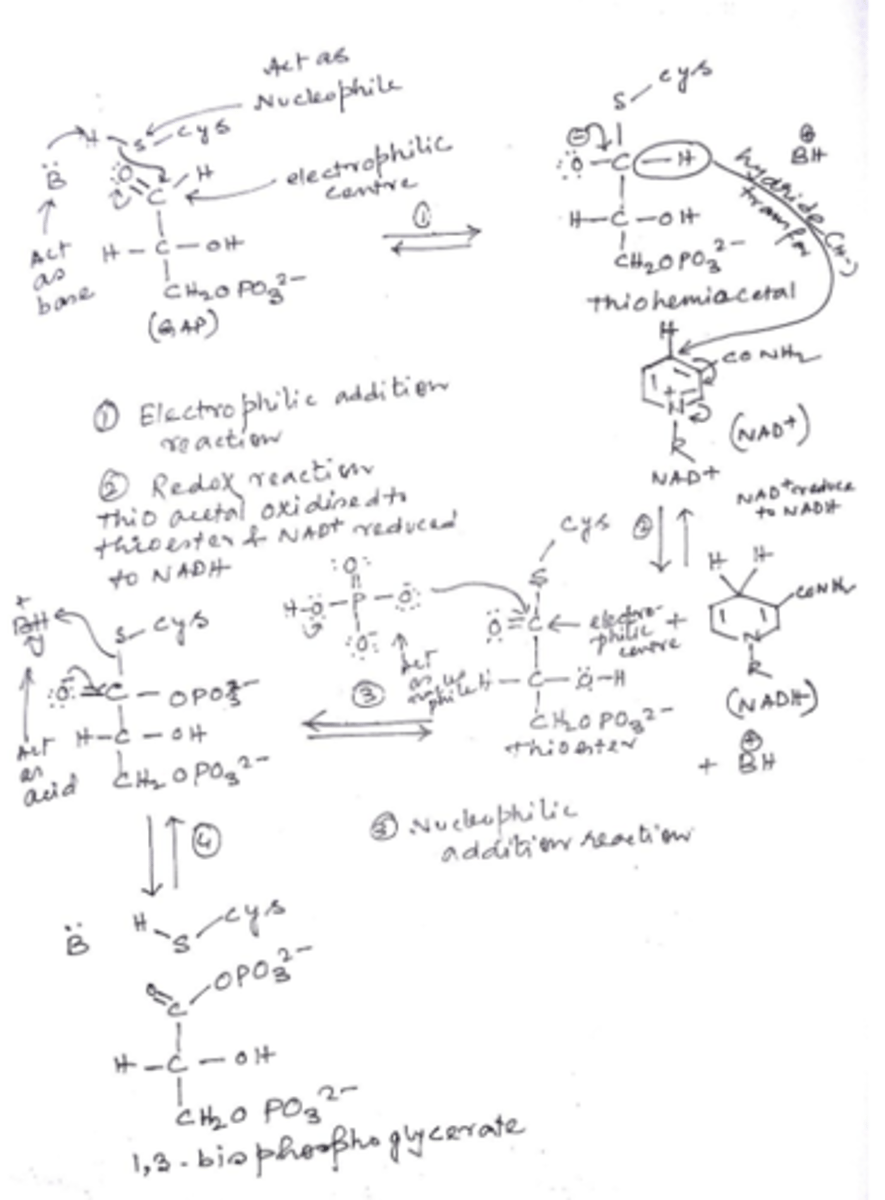 Act as
Nucleophile
H-S-Cys
B̈
Act
as
base
:O=C-H
electrophilic
centre
H-C-OH
CH₂OPO₃²⁻
(GAP)
①
S-Cys
⊖
:Ö-C-H
H-C-OH
CH₂OPO₃²⁻
Thiohemiacetal
⊕
BH
hydride (H⁻)
transfer
H
CONH₂
+
N
R
(NAD⁺)
NAD⁺
① Electrophilic addition
reaction
② Redox reaction
Thio acetal oxidised to
thioester & NAD⁺ reduced
to NADH
②
NAD⁺ reduce
to NADH
H H
CONH₂
N
R
(NADH)
+ ⊕
BH
Cys
S
Ö=C
electro-
philic
centre
+
H-C-Ö-H
CH₂OPO₃²⁻
thioester
:O:
H-Ö-P-Ö:
:O:⁻
Act
as nucleo
phile
③
+
BH
S-Cys
:Ö-C-OPO₃²⁻
H-C-OH
CH₂OPO₃²⁻
Act
as
acid
③ Nucleophilic
addition reaction
④
B̈
H-S-Cys
O=C-OPO₃²⁻
H-C-OH
CH₂O PO₃²⁻
1,3-bisphosphoglycerate